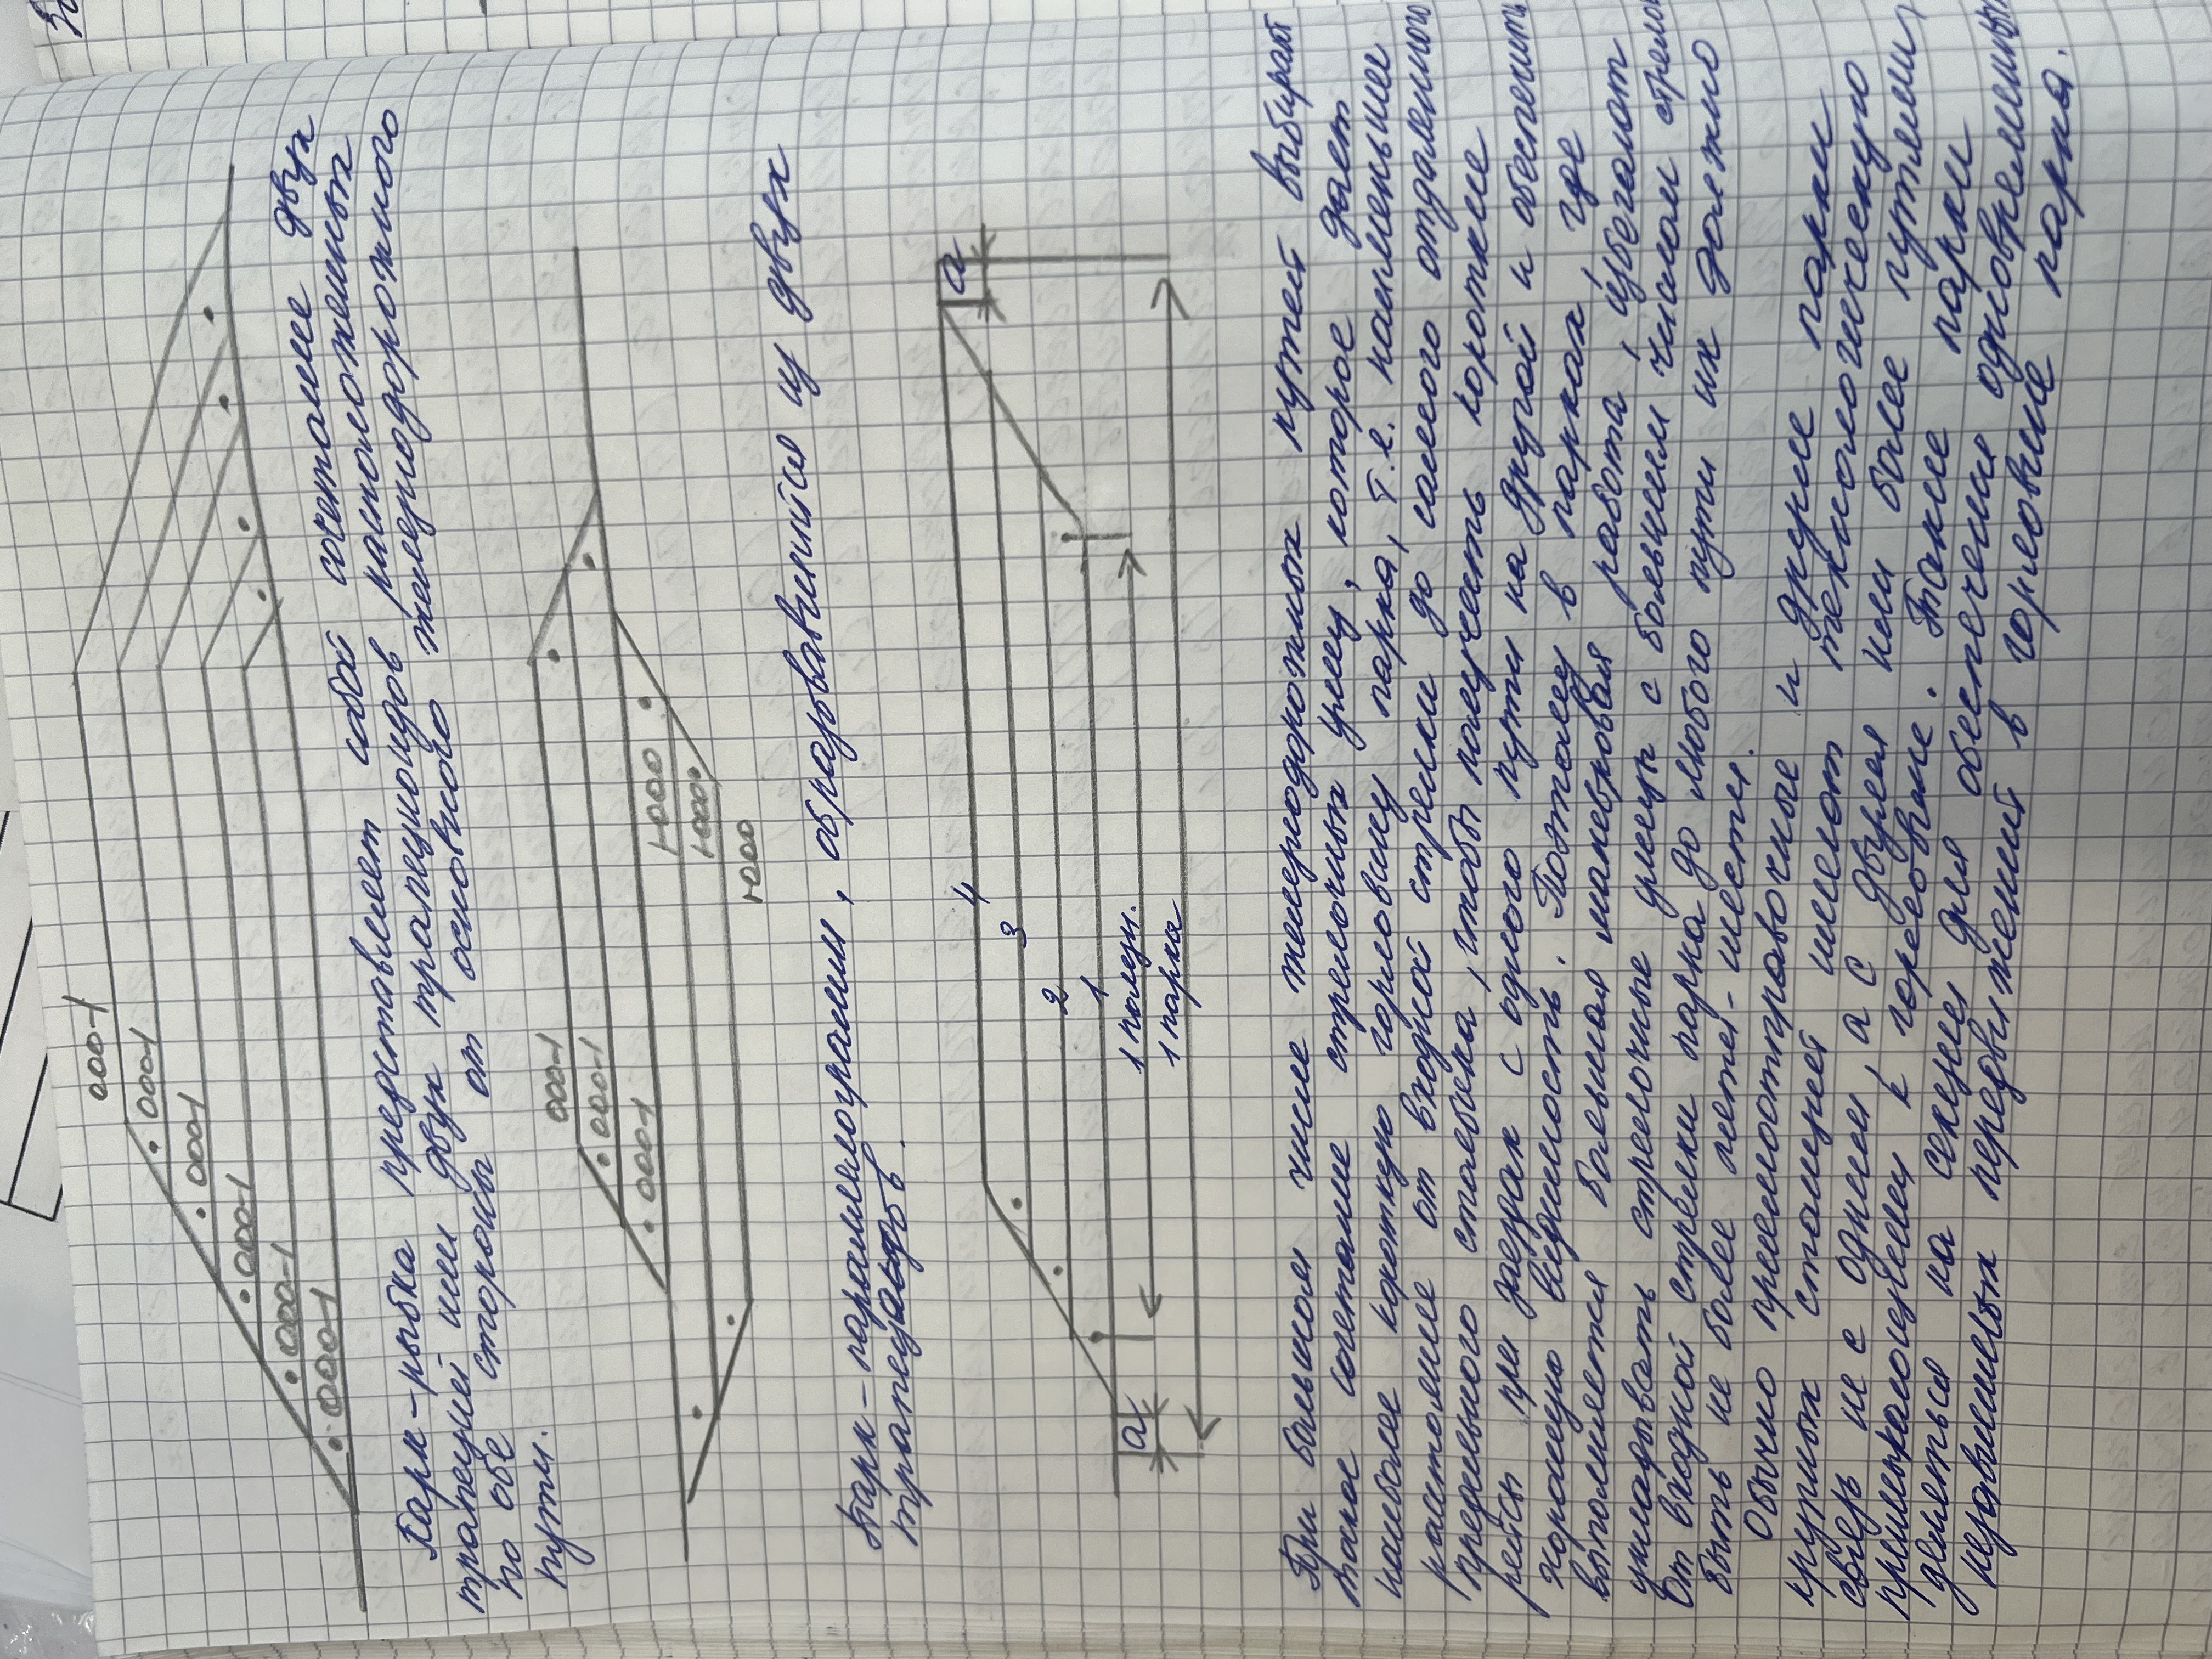 000-1
000-1
000-1
000-1
000-1
000-1
Парк-рыбка представляет собой сочетание двух
трапеций или двух трапецоидов расположенных
по обе стороны от основного железнодорожного
пути.
000-1
000-1
000-1
1-000
1-000
1-000
Парк-параллелограмм, образовавшийся из двух
трапецоидов.
4
3
2
1
1 полезн.
1 парка
а
а
При большом числе железнодорожных путей выбирают
такое сочетание стрелочных улиц, которое дает
наиболее короткую горловину парка, т.е. наименьшее
расстояние от входной стрелки до самого отдаленного
предельного столбика, чтобы получать короткие
рейсы при заездах с одного пути на другой и обеспечить
хорошую видимость. Поэтому в парках, где
выполняется большая маневровая работа, избегают
укладывать стрелочные улицы с большим числом стрелок
От входной стрелки парка до любого пути их должно
быть не более пяти-шести.
Обычно приемоотправочные и другие парки
крупных станций имеют технологическую
связь не с одним, а с двумя или более путями,
примыкающими к горловине. Такие парки
делятся на секции для обеспечения одновременных
передвижений в горловине парка.